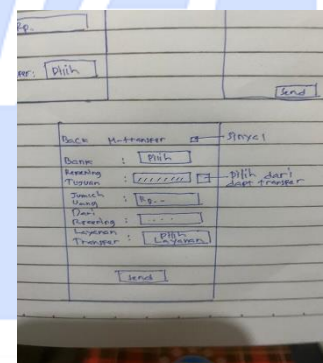 Rp.
Pilih
Send
Back M-transfer Sinyal
Bank : Pilih
Rekening
Tujuan : Pilih dari
daft transfer
Jumlah
Uang : Rp...
Dari
Rekening : ....
Layanan
Transfer : Pilih
Layanan
Send